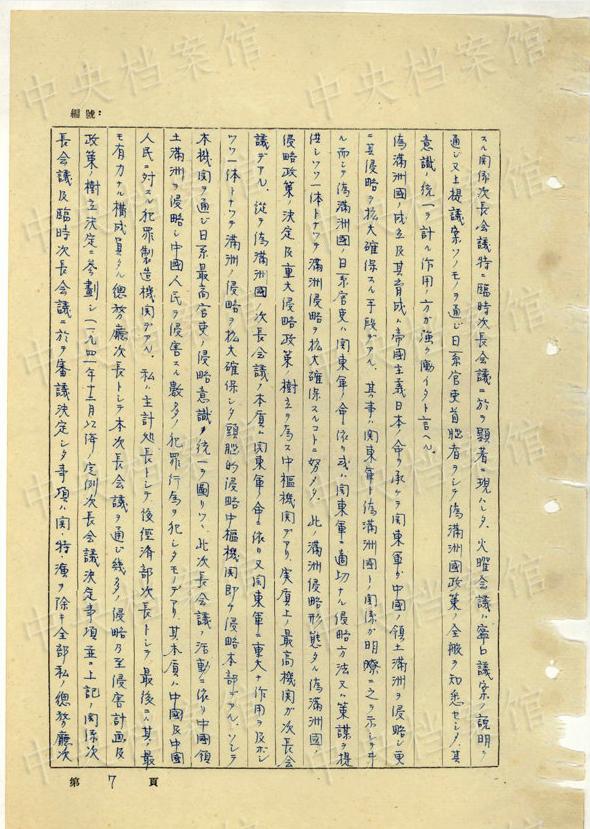 編號:
スル関係次長会議特ニ臨時次長会議ニ於テ顕著ニ現ハレタ、火曜会議ハ寧ロ議案ノ説明ヲ
通ジ又上提議案ソノモノヲ通ジ日系官吏首脳者ヲシテ偽満洲国政策ノ全般ヲ知悉セシメ其
意識ノ統一ヲ計ル作用ノ方ガ強ク働イタト言ヘル。
偽満洲國ノ成立及其育成ハ帝國主義日本ノ命ヲ承ケテ関東軍ガ中國ノ領土満洲ヲ侵略シ更
ニ其侵略ヲ拡大確保スル手段デアル、其ノ事ハ関東軍ト偽満洲國トノ関係ガ明瞭ニ之ヲ示シテヰ
ル而シテ偽満洲國ノ日系官吏ハ関東軍ノ命ニ依リ或ハ関東軍ニ適切ナル侵略方法又ハ策謀ヲ提
供シツツ一体トナツテ満洲侵略ヲ拡大確保スルコトニ努メタ、此ノ満洲侵略形態タル偽満洲國
侵略政策ノ決定及重大侵略政策ノ樹立ヲ為ス中樞機関デアリ、実質上ノ最高機関ガ次長会
議デアル、從テ偽満洲國ノ次長会議ノ本質ハ関東軍ノ命ニ依リ又関東軍ニ重大ナ作用ヲ及ボシ
ツツ一体トナツテ満洲ノ侵略ヲ拡大確保シタ頭脳的侵略中樞機関即チ侵略本部デアル、ソシテ
本機関ヲ通ジ日系最高官吏ノ侵略意識ヲ統一ヲ圖リツツ、此次長会議ノ活動ニ依リ中國領
土満洲ヲ侵略シ中國人民ヲ侵害スル数多ノ犯罪行為ヲ犯シタモノデアリ其本質ハ中國及中國
人民ニ対スル犯罪製造機関デアル、私ハ主計処長トシテ後經済部次長トシテ最後ニハ其ノ最
モ有力ナル構成員タル總務廳次長トシテ本次長会議ヲ通ジ幾多ノ侵略乃至侵害計画及
政策ノ樹立決定ニ参劃シ(一九四一年十二月以降ノ定例次長会議決定事項並ニ上記ノ関係次
長会議及臨時次長会議ニ於テ審議決定シタ事項ハ関、特、演ヲ除キ全部私ガ總務廳次
第 7 頁
中央档案馆